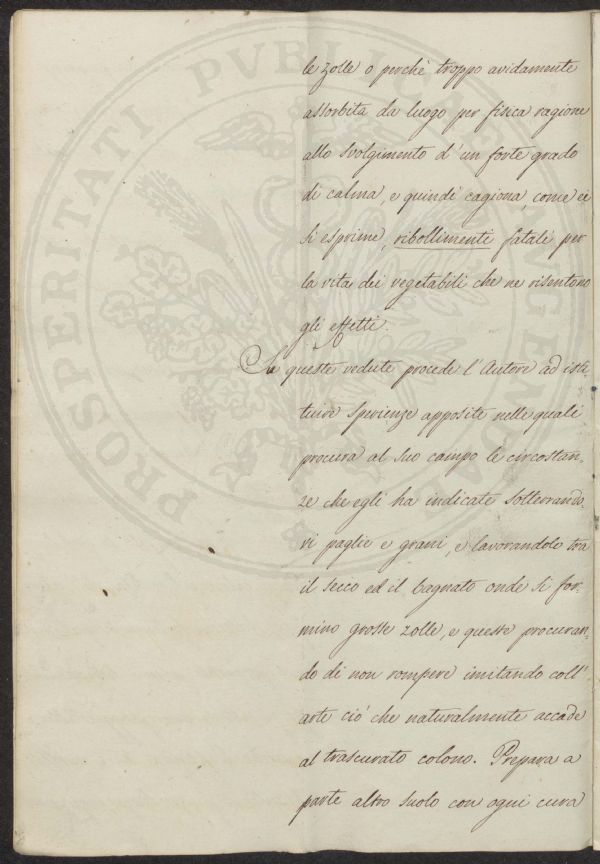 le zolle o perchè troppo avidamente
assorbita da luogo per fisica ragione
allo svolgimento d'un forte grado
di calma, e quindi cagiona, come ei
si esprime, ribollimenti fatali per
la vita dei vegetabili che ne risentono
gli effetti.
Su queste vedute procede l'Autore ad isti-
tuire sperienze apposite nelle quali
procura al suo campo le circostan-
ze che egli ha indicate sotterrando-
vi paglie e grani, e lavorandole tra
il secco ed il bagnato onde si for-
mino grosse zolle, e queste procuran-
do di non rompere imitando coll'
arte ciò che naturalmente accade
al trascurato colono. Prepara a
parte altro suolo con ogni cura
PROSPERITATI PVBLICAE AVGENDAE